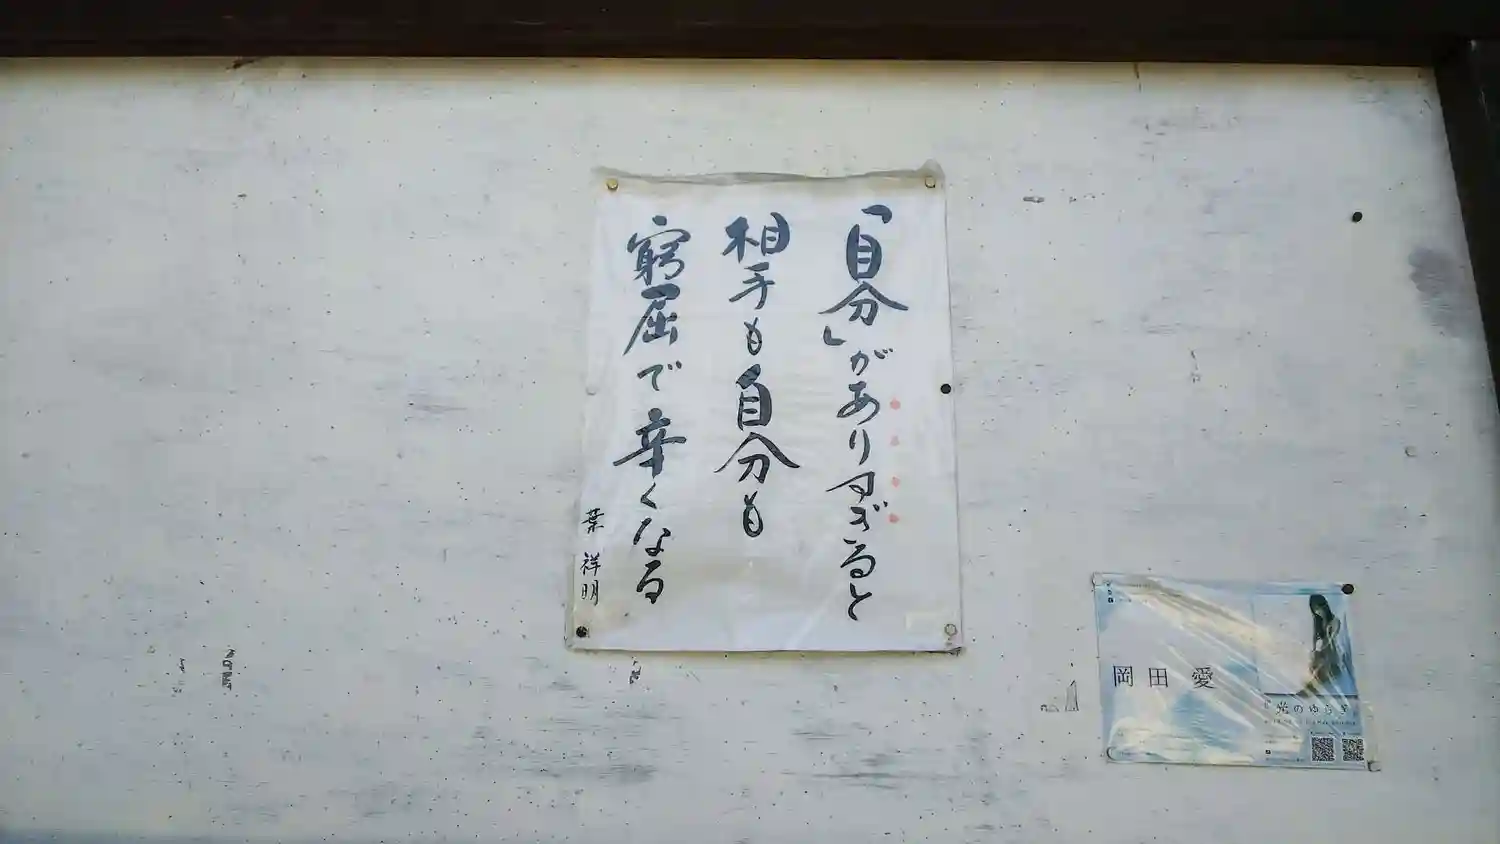 「自分」がありすぎると
相手も自分も
窮屈で辛くなる
葉 祥明
岡田 愛
光のゆらぎ